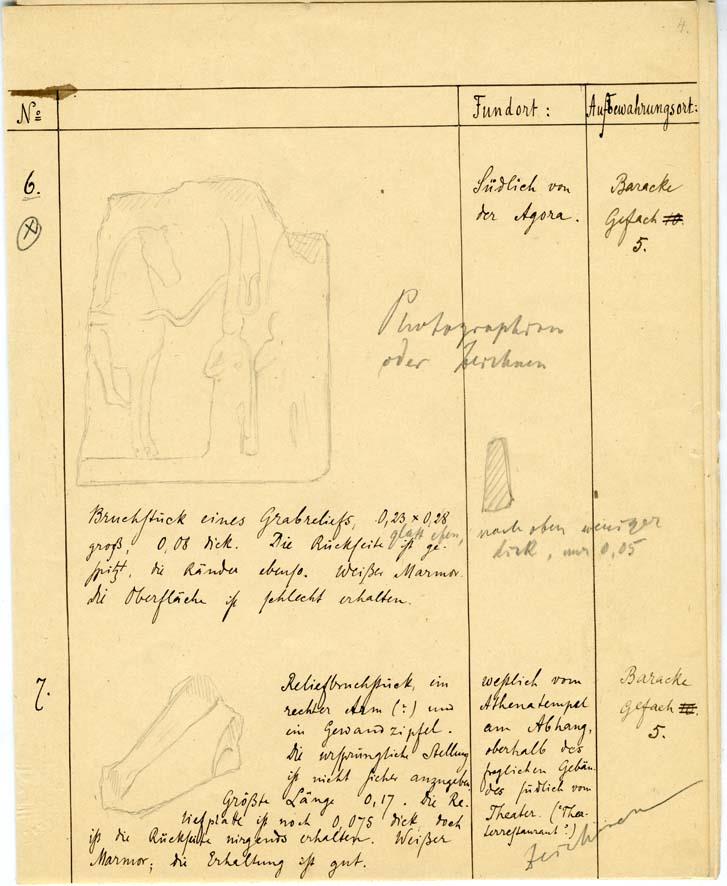 4.
No Fundort: Aufbewahrungsort:
6. Südlich von Baracke
der Agora. Gefach 10.
5.
Photographieren
oder Zeichnen
Bruchstück eines Grabreliefs, 0,23 x 0,28
groß, 0,08 dick. Die Rückseite ist ge-
spitzt, die Ränder ebenso. Weißer Marmor.
die Oberfläche ist schlecht erhalten.
nach oben weniger
dick, nur 0,05
7.
Reliefbruchstück, ein
rechter Arm (?) und
ein Gewandzipfel.
Die ursprüngliche Stellung
ist nicht sicher anzugeben
Größte Länge 0,17. Die Re-
liefplatte ist noch 0,075 dick doch
ist die Rückseite nirgends erhalten. Weißer
Marmor; die Erhaltung ist gut.
westlich vom
Athenatempel
am Abhang,
oberhalb des
fraglichen Gebäu-
des südlich vom
Theater. ("Thea-
terrestaurant"?)
Baracke
Gefach 10.
5.
Zeichnen